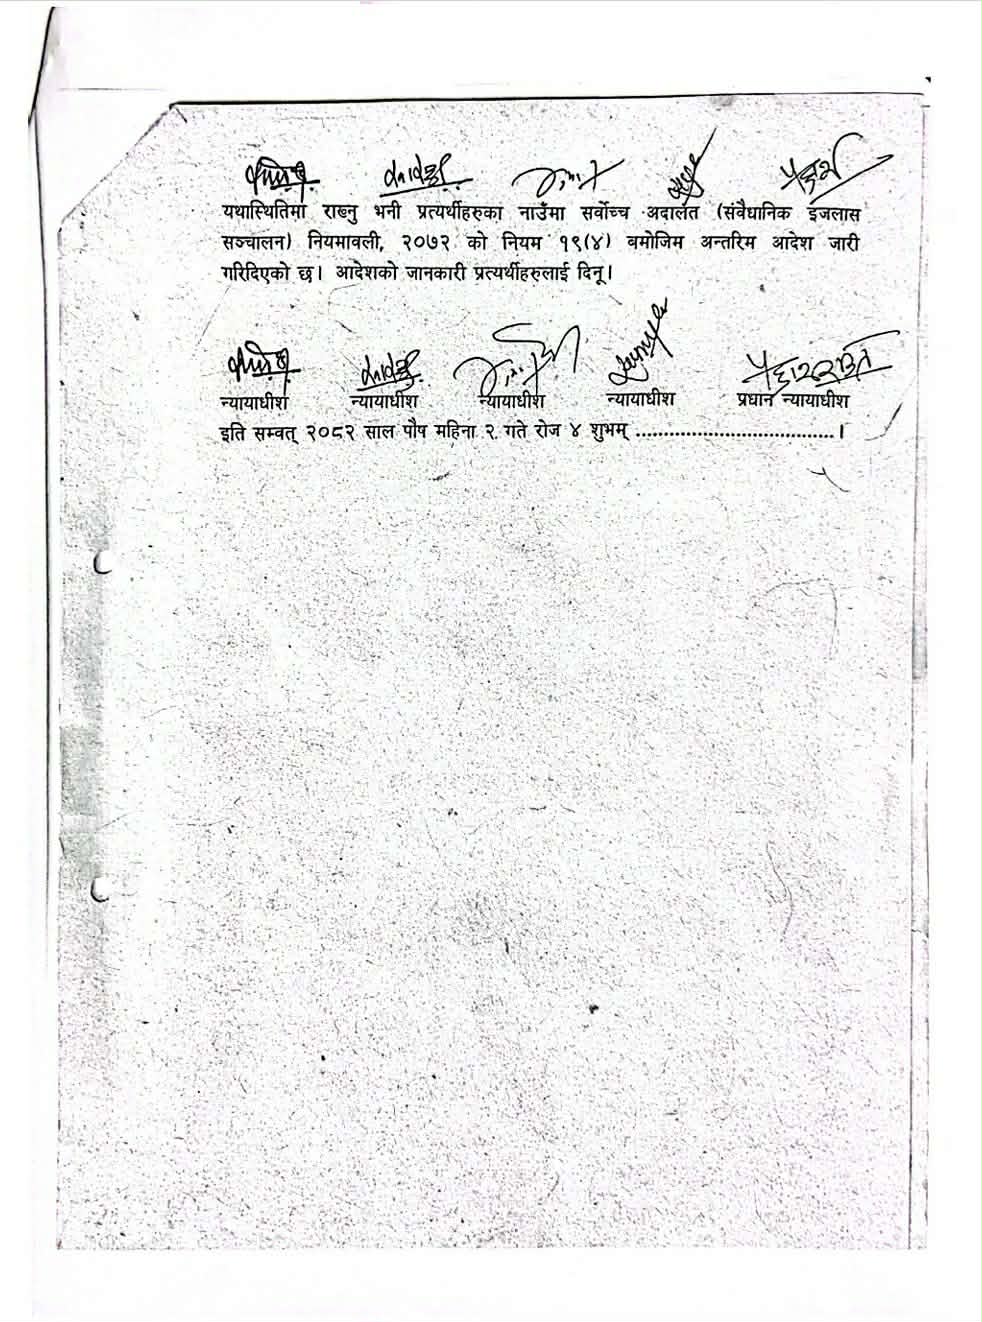 यथास्थितिमा राख्नु भनी प्रत्यर्थीहरुका नाउँमा सर्वोच्च अदालत (संवैधानिक इजलास
सञ्चालन) नियमावली, २०७२ को नियम १९(४) बमोजिम अन्तरिम आदेश जारी
गरिदिएको छ। आदेशको जानकारी प्रत्यर्थीहरुलाई दिनू।
न्यायाधीश न्यायाधीश न्यायाधीश न्यायाधीश प्रधान न्यायाधीश
इति सम्वत् २०८२ साल पौष महिना २ गते रोज ४ शुभम् ...................................।